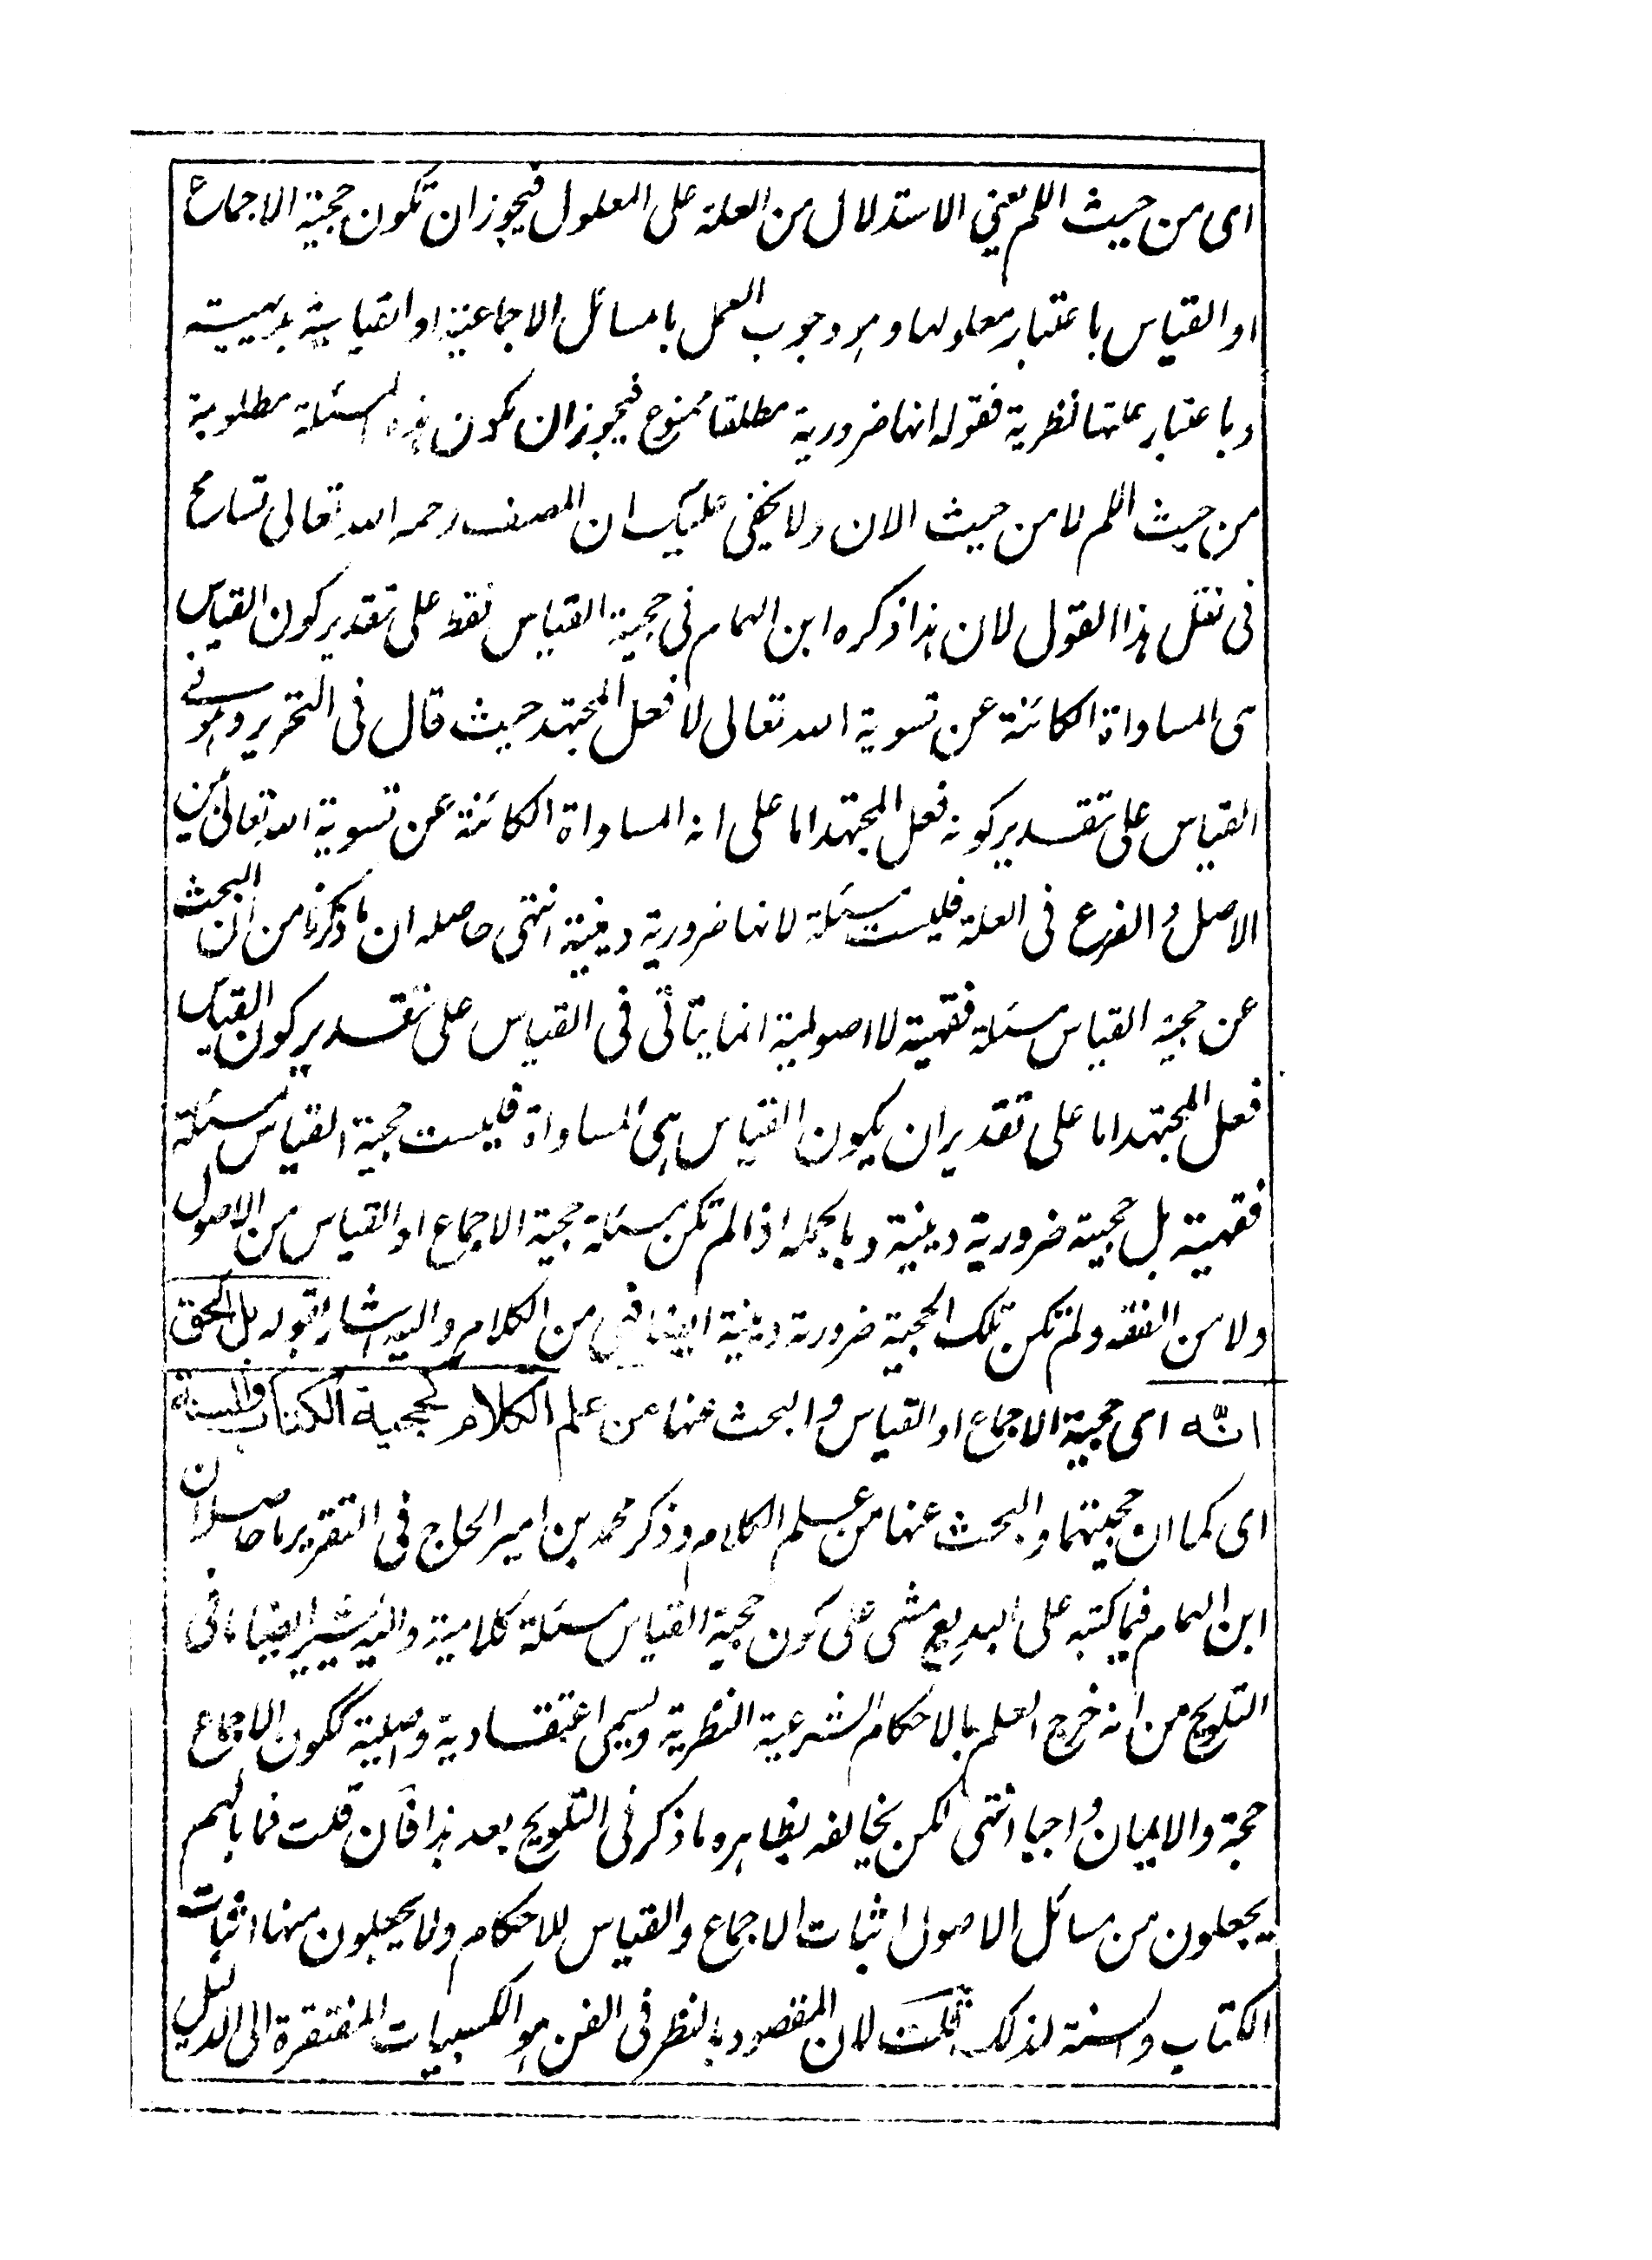 اى من حيث اللم يعنى الاستدلال من العلة على المعلول فيجوز ان تكون حجية الاجماع
او القياس باعتبار معلولها وهو وجوب العمل بالمسائل الاجماعية او القياسية بديهية
وباعتبار علتها نظرية فقوله انها ضرورية مطلقا ممنوع فيجوز ان يكون هذه المسئلة مطلوبة
من حيث اللم لا من حيث الان ولا يخفى عليك ان المصنف رحمه الله تعالى تسامح
فى نقل هذا القول لان هذا ذكره ابن الهمام فى حجية القياس فقط على تقدير كون القياس
هى المساواة الكائنة عن تسوية الله تعالى لا فعل المجتهد حيث قال فى التحرير وهو فى
القياس على تقدير كونه فعل المجتهد اما على انه المساواة الكائنة عن تسوية الله تعالى بين
الاصل والفرع فى العلة فليست مسئلة لانها ضرورية دينية انتهى حاصله ان ما ذكرنا من ان البحث
عن حجية القياس مسئلة فقهية لا اصولية انما يتأتى فى القياس على تقدير كون القياس
فعل المجتهد اما على تقدير ان يكون القياس هى المساواة فليست حجية القياس مسئلة
فقهية بل حجية ضرورية دينية وبالجملة اذا لم تكن مسئلة حجية الاجماع او القياس من الاصول
ولا من الفقه ولم تكن تلك الحجية ضرورة دينية ايضا فهى من الكلام واليه اشار بقوله بل الحق
انّه اى حجية الاجماع او القياس والبحث عنها من علم الكلام كحجية الكتاب والسنة
اى كما ان حجيتهما والبحث عنها من علم الكلام وذكر محمد بن امير الحاج فى التقرير ما حاصله ان
ابن الهمام فيما كتبه على البديع مشى على كون حجية القياس مسئلة كلامية واليه يشير ايضا ما فى
التلويح من انه خرج العلم بالاحكام الشرعية النظرية ويسمى اعتقادية واصلية ككون الاجماع
حجة والايمان واجبا انتهى لكن يخالفه بظاهره ما ذكر فى التلويح بعد هذا فان قلت فما بالهم
يجعلون من مسائل الاصول اثبات الاجماع والقياس للاحكام ولا يجعلون منها اثبات
الكتاب والسنة لذلك قلت لان المقصود بالنظر فى الفن هو الكسبيات المفتقرة الى الدليل